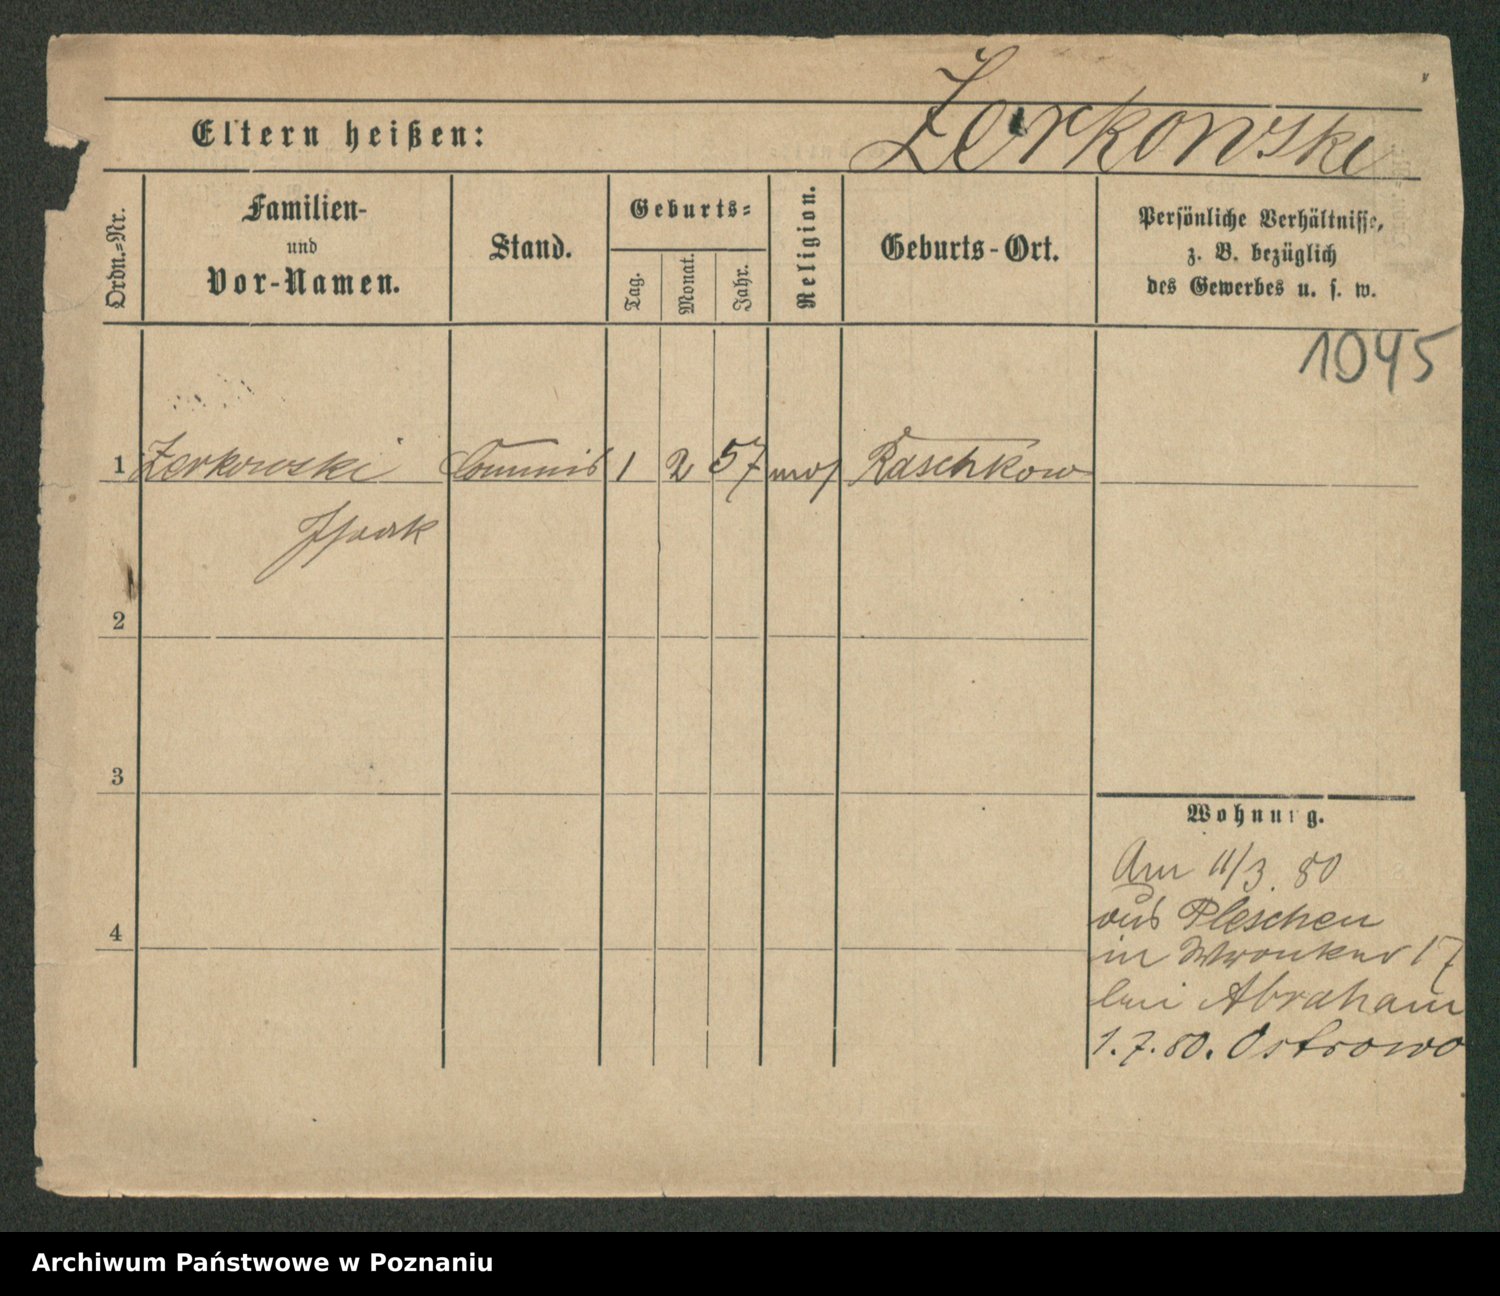 Zerkowski
Eltern heißen:
Ordn.=Nr.
Familien-
und
Vor-Namen.
Stand.
Geburts=
Tag.
Monat.
Jahr.
Religion.
Geburts-Ort.
Persönliche Verhältnisse,
z. B. bezüglich
des Gewerbes u. s. w.
1045
1 Zerkowski Commis 1 2 57 mos Raschkow
Isaak
2
3
4
Wohnung.
Am 11/3. 80
aus Pleschen
in Wronker 17
bei Abraham
1.7.80. Ostrowo
Archiwum Państwowe w Poznaniu